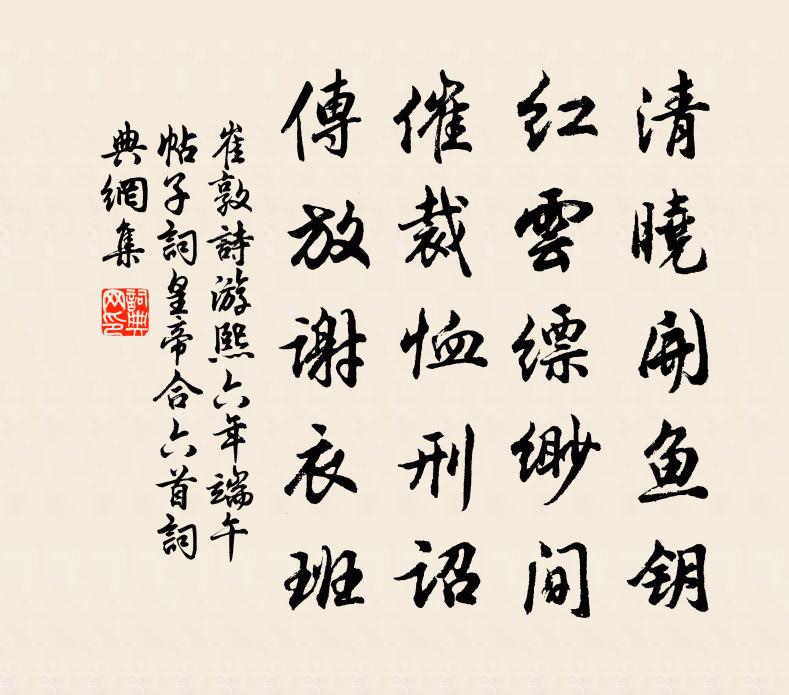 清曉開魚钥
红雲縹緲間
催裁恤刑詔
傳放謝衣班
崔敦詩游熙六年端午
帖子詞皇帝合六首詞
典網集
詞典
网印